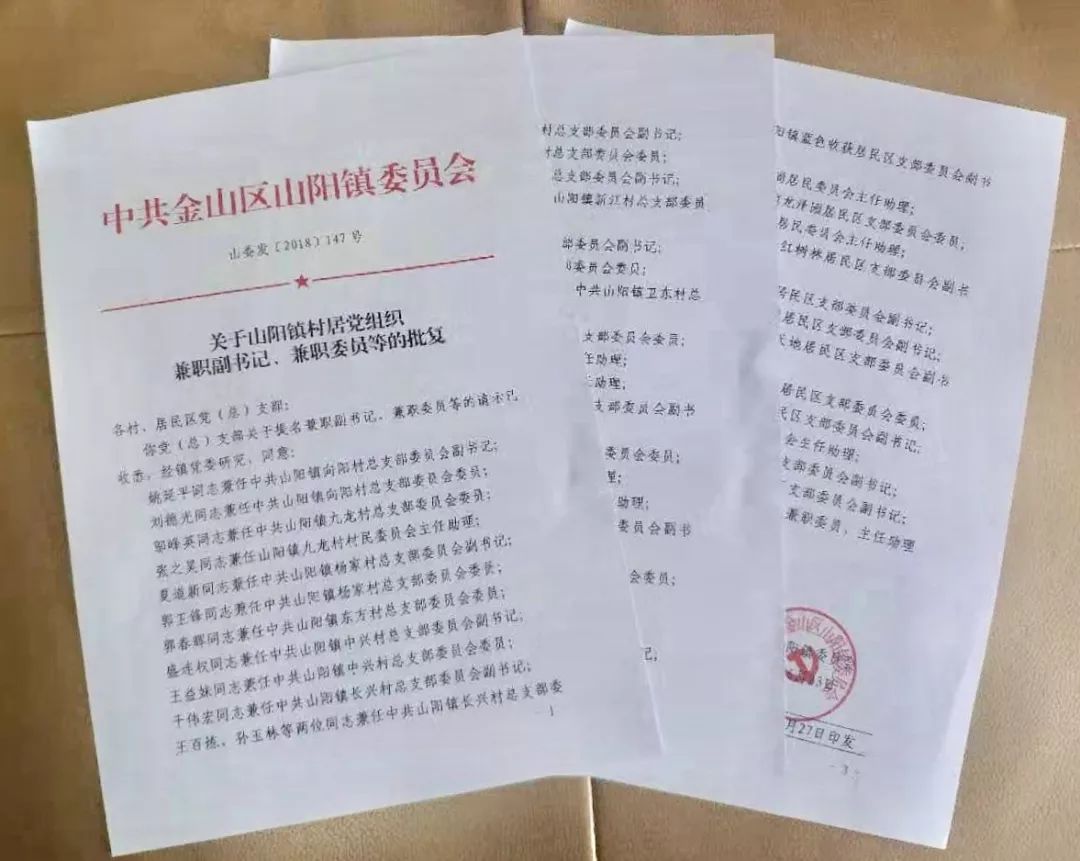 中共金山区山阳镇委员会
山委发〔2018〕147号
关于山阳镇村居党组织
兼职副书记、兼职委员等的批复
各村、居民区党（总）支部：
你党（总）支部关于提名兼职副书记、兼职委员等的请示已
收悉，经镇党委研究，同意：
姚延平同志兼任中共山阳镇向阳村总支部委员会副书记；
刘德光同志兼任中共山阳镇向阳村总支部委员会委员；
邬峰英同志兼任中共山阳镇九龙村总支部委员会委员；
张之昊同志兼任山阳镇九龙村村民委员会主任助理；
夏道新同志兼任中共山阳镇杨家村总支部委员会副书记；
郭王锋同志兼任中共山阳镇杨家村总支部委员会委员；
郭春辉同志兼任中共山阳镇东方村总支部委员会委员；
盛连权同志兼任中共山阳镇中兴村总支部委员会副书记；
王益妹同志兼任中共山阳镇中兴村总支部委员会委员；
干伟宏同志兼任中共山阳镇长兴村总支部委员会副书记；
王百拣、孙玉林等两位同志兼任中共山阳镇长兴村总支部委
- 1
村总支部委员会副书记；
村总支部委员会委员；
总支部委员会副书记；
山阳镇新江村总支部委员
部委员会副书记；
委员会委员；
中共山阳镇卫东村总
支部委员会委员；
任助理；
主助理；
支部委员会副书
委员会委员；
助理；
委员会副书
会委员；
记；
阳镇蓝色收获居民区支部委员会副书
居民委员会主任助理；
龙泽园居民区支部委员会委员；
居民委员会主任助理；
红树林居民区支部委员会副书
居民区支部委员会副书记；
居民区支部委员会副书记；
天地居民区支部委员会副书
居民区支部委员会委员；
民区支部委员会副书记；
会主任助理；
支部委员会副书记；
支部委员会副书记；
兼职委员、主任助理
金山区山阳镇委员会
阳镇委
3日
月27日印发
- 3